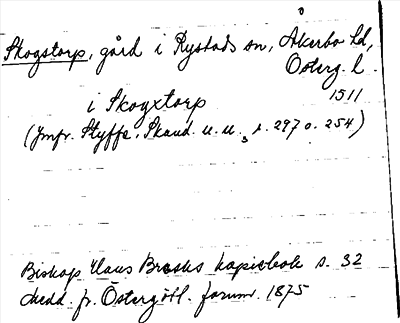 Skogstorp, gård i Rystads sn, Åkerbo hd,
Österg. l.
1511
i Skogxtorp
(Jmfr. Styffe, Skand. u. u., s. 297 o. 254)
Biskop Hans Brasks kopiebok s. 32
Medd. fr. Östergötl. fornm. 1875